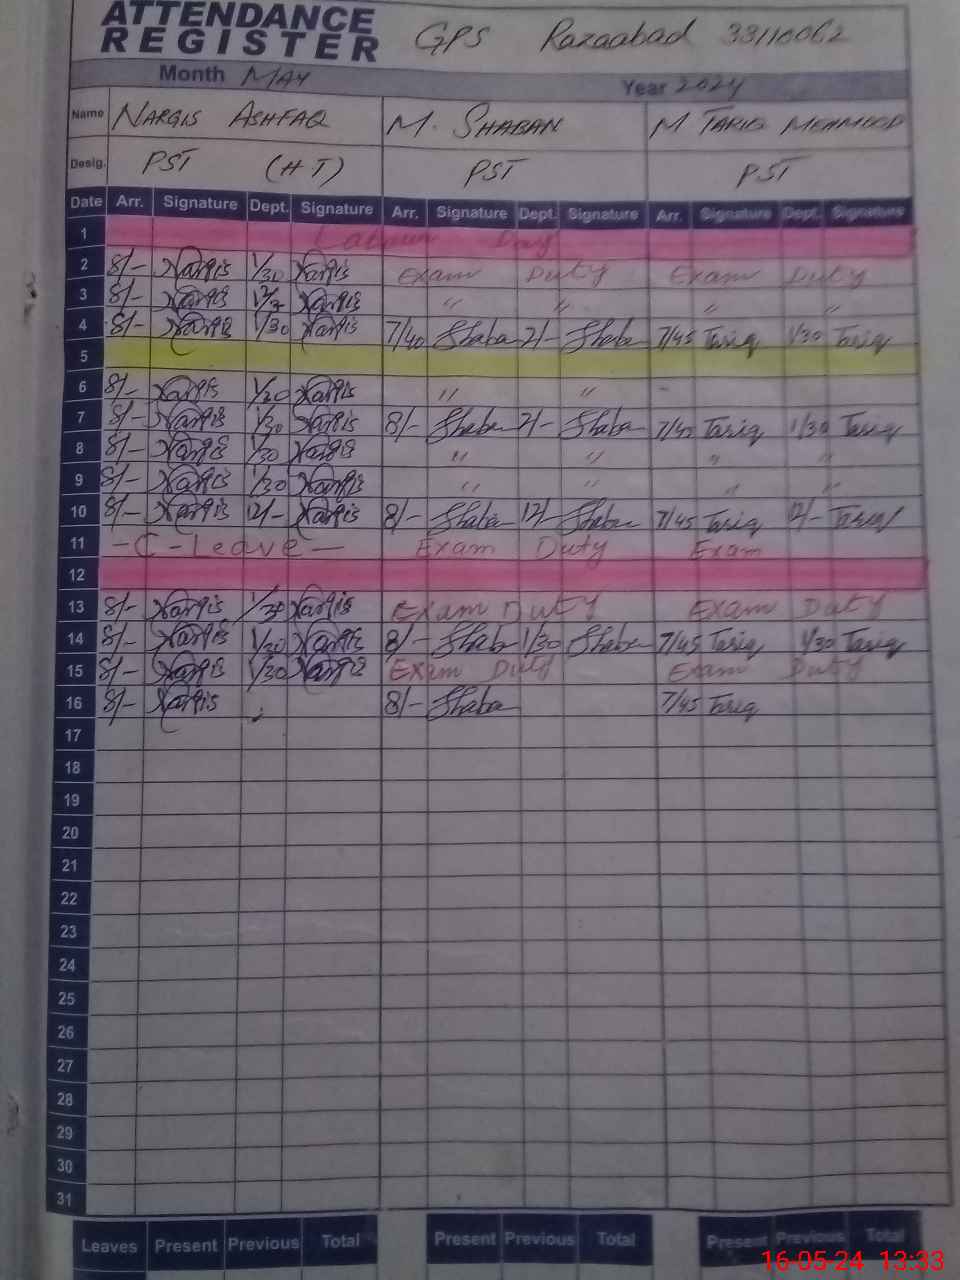 ATTENDANCE REGISTER GPS Razaabad
Month MAY Year 2024
Name NARGIS ASHFAQ M. SHABAN M TARIQ MEHMOOD
Desig. PST (HT) PST PST
Date Arr. Signature Dept. Signature Arr. Signature Dept. Signature Arr. Signature Dept. Signature
1 Labour Day
2 8/- Nargis 1/30 Nargis Exam Duty Exam Duty
3 8/- Nargis Nargis " " " "
4 8/- Nargis 1/30 Nargis 7/40 Shaba 2/- Shaba 7/45 Tariq 1/30 Tariq
5
6 8/- Nargis 1/30 Nargis " " -
7 8/- Nargis 1/30 Nargis 8/- Shaba 2/- Shaba Tariq 1/30 Tariq
8 8/- Nargis 1/30 Nargis " " " "
9 8/- Nargis 1/30 Nargis " " " "
10 8/- Nargis 12/- Nargis 8/- Shaba 12/- Shaba 7/45 Tariq 12/- Tariq
11 -C-Leave- Exam Duty Exam
12
13 8/- Nargis 1/30 Nargis Exam Duty Exam Duty
14 8/- Nargis 1/30 Nargis 8/- Shaba 1/30 Shaba 7/45 Tariq 1/30 Tariq
15 8/- Nargis 1/30 Nargis Exam Duty Exam Duty
16 8/- Nargis 8/- Shaba 7/45 Tariq
17
18
19
20
21
22
23
24
25
26
27
28
29
30
31
Leaves Present Previous Total Present Previous Total Present Previous Total
16-05-24 13:33